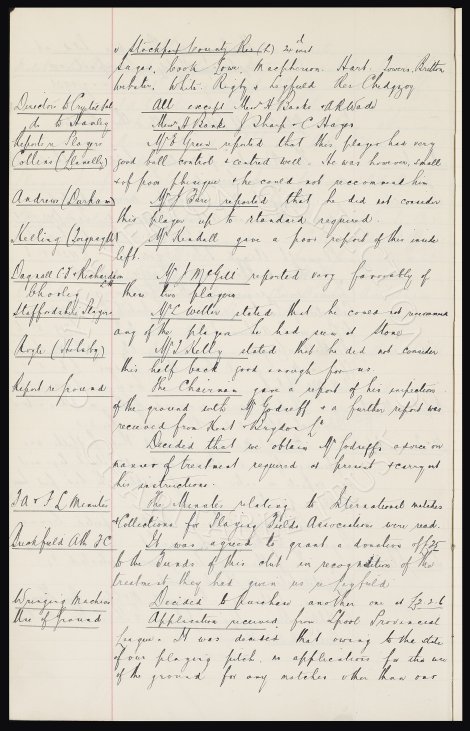 v Stockport County Res (L) 2nd inst
Sagar, Cook, Lowe, Macpherson. Hart. Towers, Britton
Webster, White, Rigby & Highfield Res Chedgzoy
Directors to Crystal Pal All except Messrs H Banks & A R Wade
do to Hawley Messrs H Banks J Sharp & C Hayes
Report re Players Mr E Green reported that this player has very
Collins (Llanelly) good ball control & centred well. He was however, small
& of poor physique & he could not recommend him
Andrew (Durham) Mr J Fare reported that he did not consider
this player up to standard required.
Kelling (Torquay Utd) Mr Kendall gave a poor report of this inside
left.
Dagnall C.F & Richardson Mr J McGill reported very favorably of
Chorley these two players
Staffordshire Players Mr C Weller stated that he could not recommend
any of the players he had seen at Stone
Royle (Ashby) Mr T Kelly stated that he did not consider
this half back good enough for us.
Report re ground The Chairman gave a report of his inspection
of the ground with Mr Godseff & a further report was
received from Hunt Lo
Decided that we obtain Mr Godseff's advice on
manner of treatment required at present & carry out
his instructions.
F A & F L Minutes The Minutes relating to International matches
& Collections for Playing Fields Associations were read.
Ath F C It was agreed to grant a donation of £25
to the Funds of this club in recognition of the
treatment they had given us re Highfield.
Wringing Machine Decided to purchase another one at £7.2.6
Use of ground Application received from L'pool Provincial
League. It was decided that owing to the state
of our playing pitch, no applications for the use
of the ground for any matches other than our